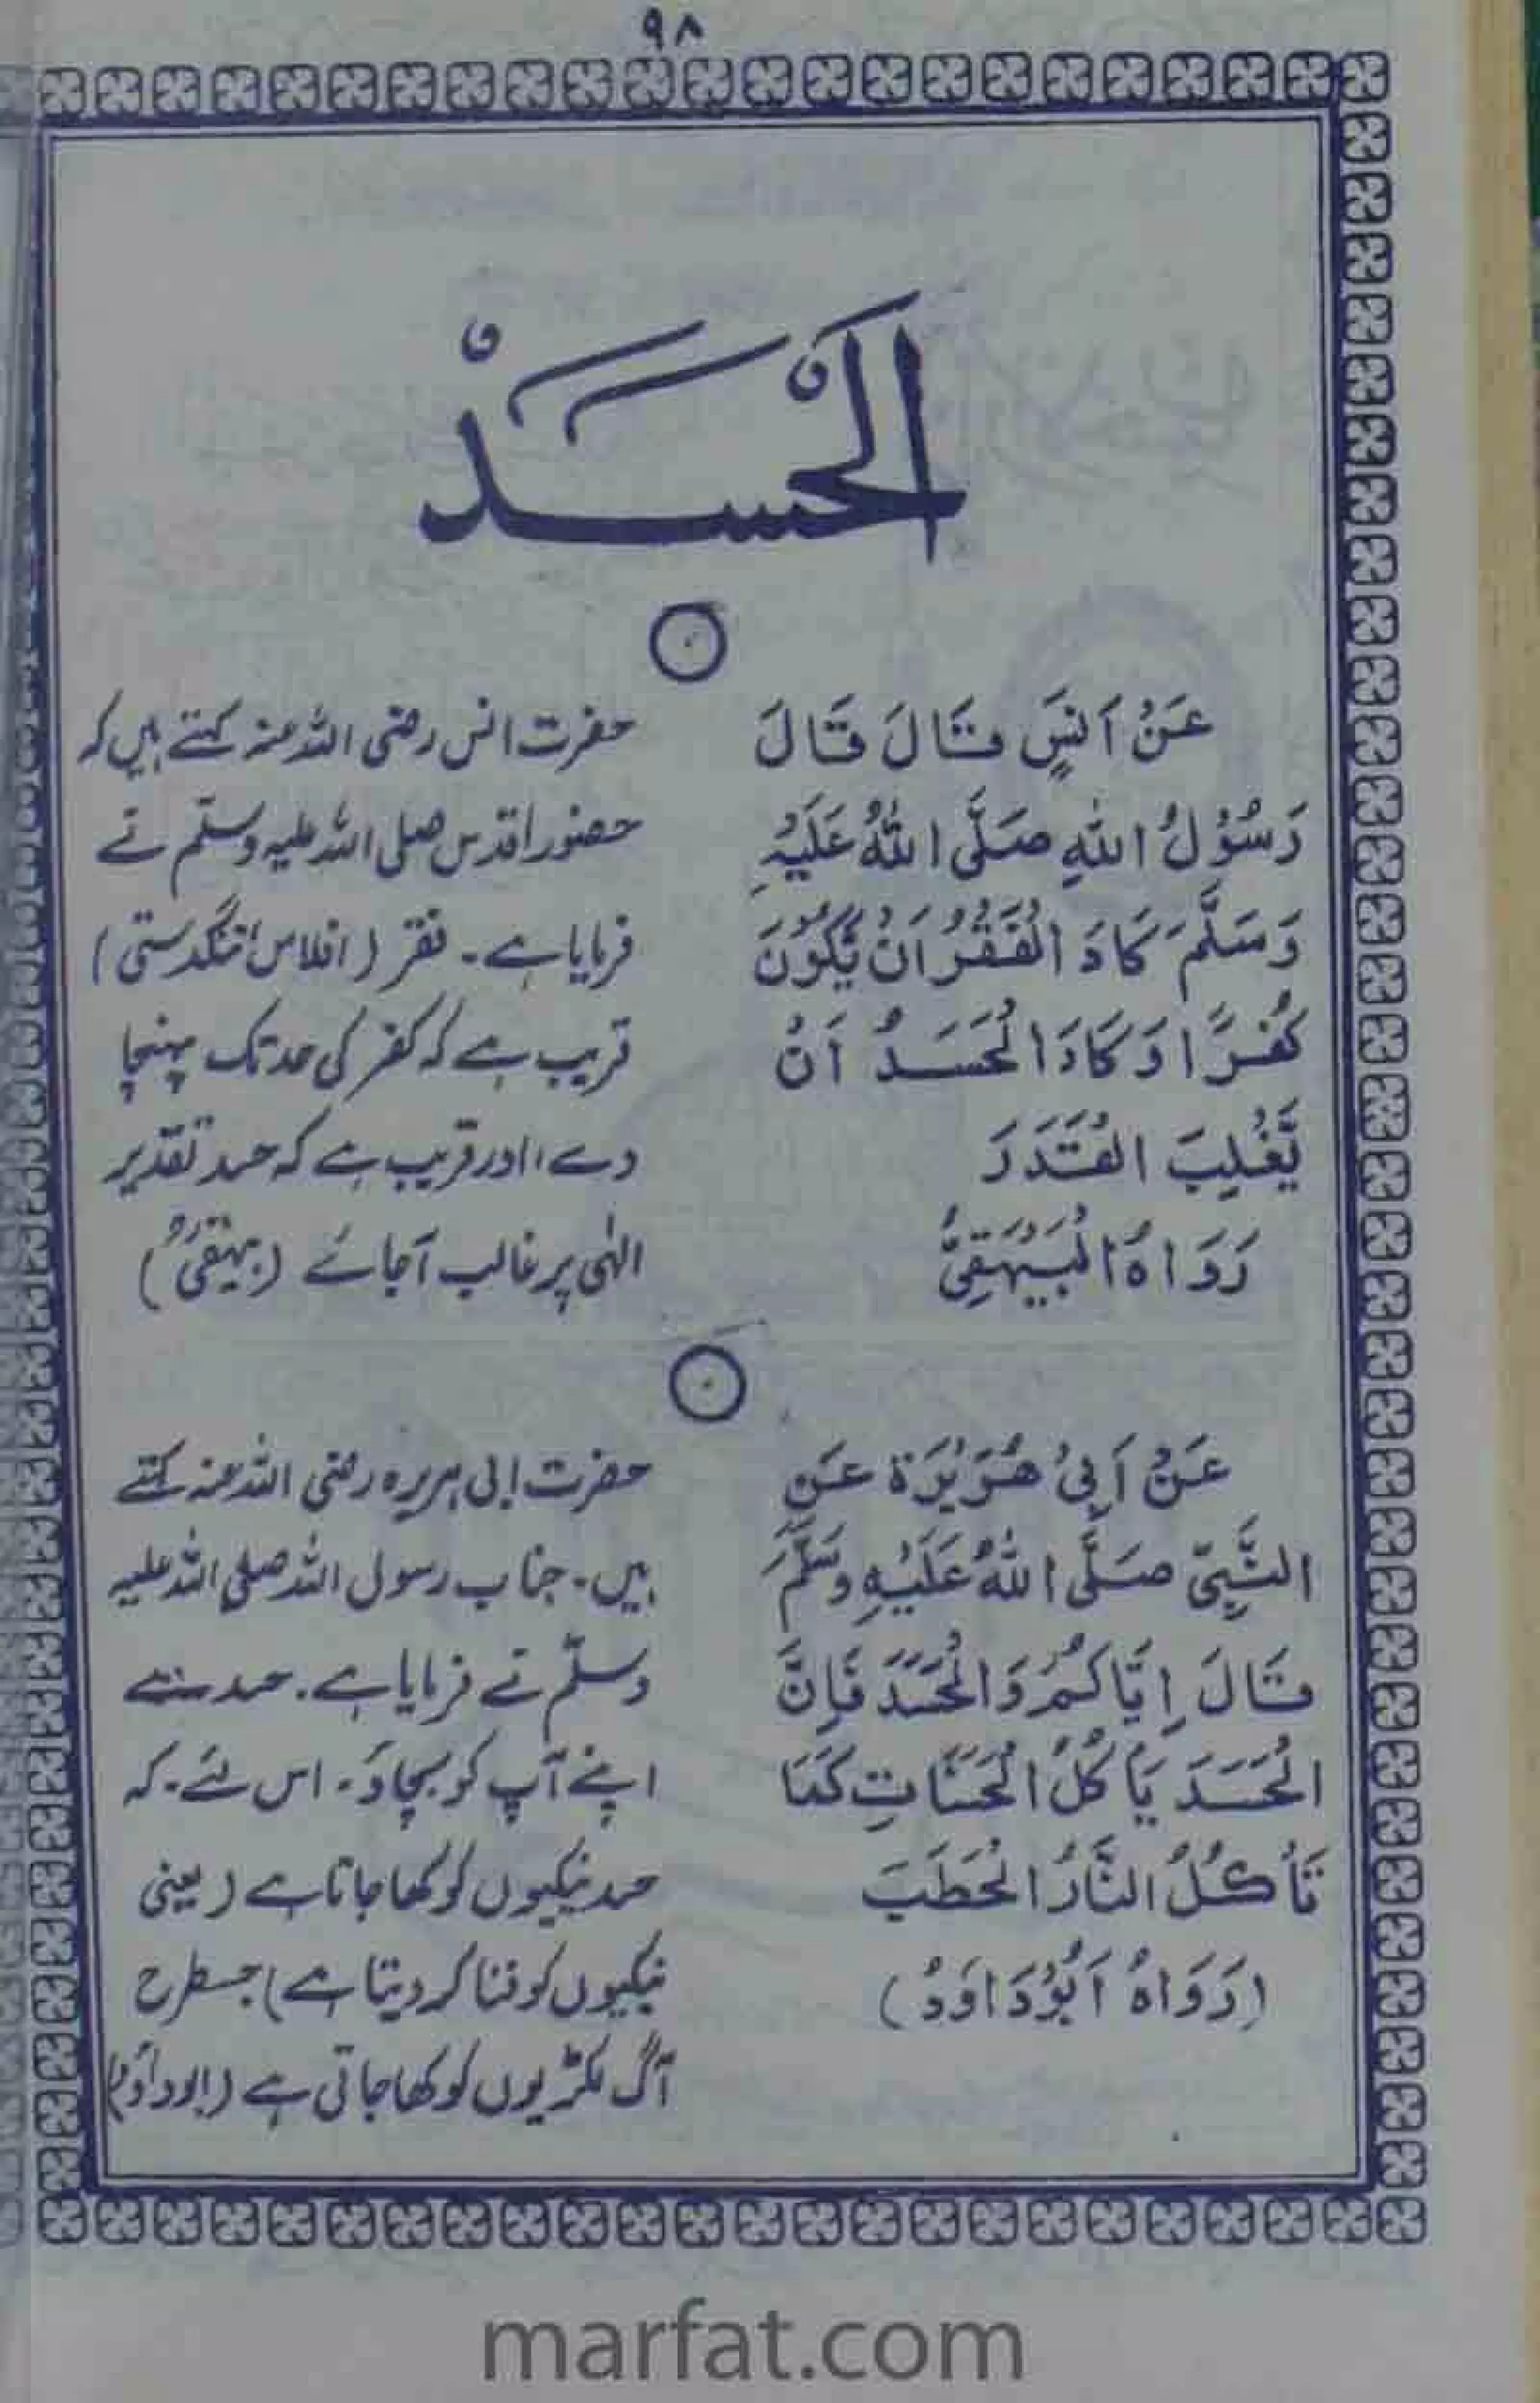 ۹۸
اَلْحَسَدْ
عَنْ اَنَسٍ قَالَ قَالَ
رَسُوْلُ اللّٰہِ صَلَّی اللّٰہُ عَلَیْہِ
وَسَلَّمَ کَادَ الْفَقْرُ اَنْ یَّکُوْنَ
کُفْرًا وَکَادَ الْحَسَدُ اَنْ
یَّغْلِبَ الْقَدَرَ
رَوَاہُ الْبَیْہَقِیُّ
حضرت انس رضی اللہ عنہ کہتے ہیں کہ
حضور اقدس صلی اللہ علیہ وسلّم نے
فرمایا ہے ۔ فقر (افلاس، تنگدستی)
قریب ہے کہ کفر کی حد تک پہنچا
دے، اور قریب ہے کہ حسد تقدیر
الٰہی پر غالب آجائے (بیہقیؒ)
عَنْ اَبِیْ ھُرَیْرَۃَ عَنِ
النَّبِیِّ صَلَّی اللّٰہُ عَلَیْہِ وَسَلَّمَ
قَالَ اِیَّاکُمْ وَالْحَسَدَ فَاِنَّ
الْحَسَدَ یَأْکُلُ الْحَسَنَاتِ کَمَا
تَأْکُلُ النَّارُ الْحَطَبَ
(رَوَاہُ اَبُوْدَاوٗدَ)
حضرت ابی ہریرہ رضی اللہ عنہ کہتے
ہیں ۔ جناب رسول اللہ صلی اللہ علیہ
وسلّم نے فرمایا ہے ۔ حسد سے
اپنے آپ کو بچاؤ ۔ اس لئے ۔ کہ
حسد نیکیوں کو کھا جاتا ہے (یعنی
نیکیوں کو فنا کر دیتا ہے) جس طرح
آگ لکڑیوں کو کھا جاتی ہے (ابوداؤدؒ)
marfat.com